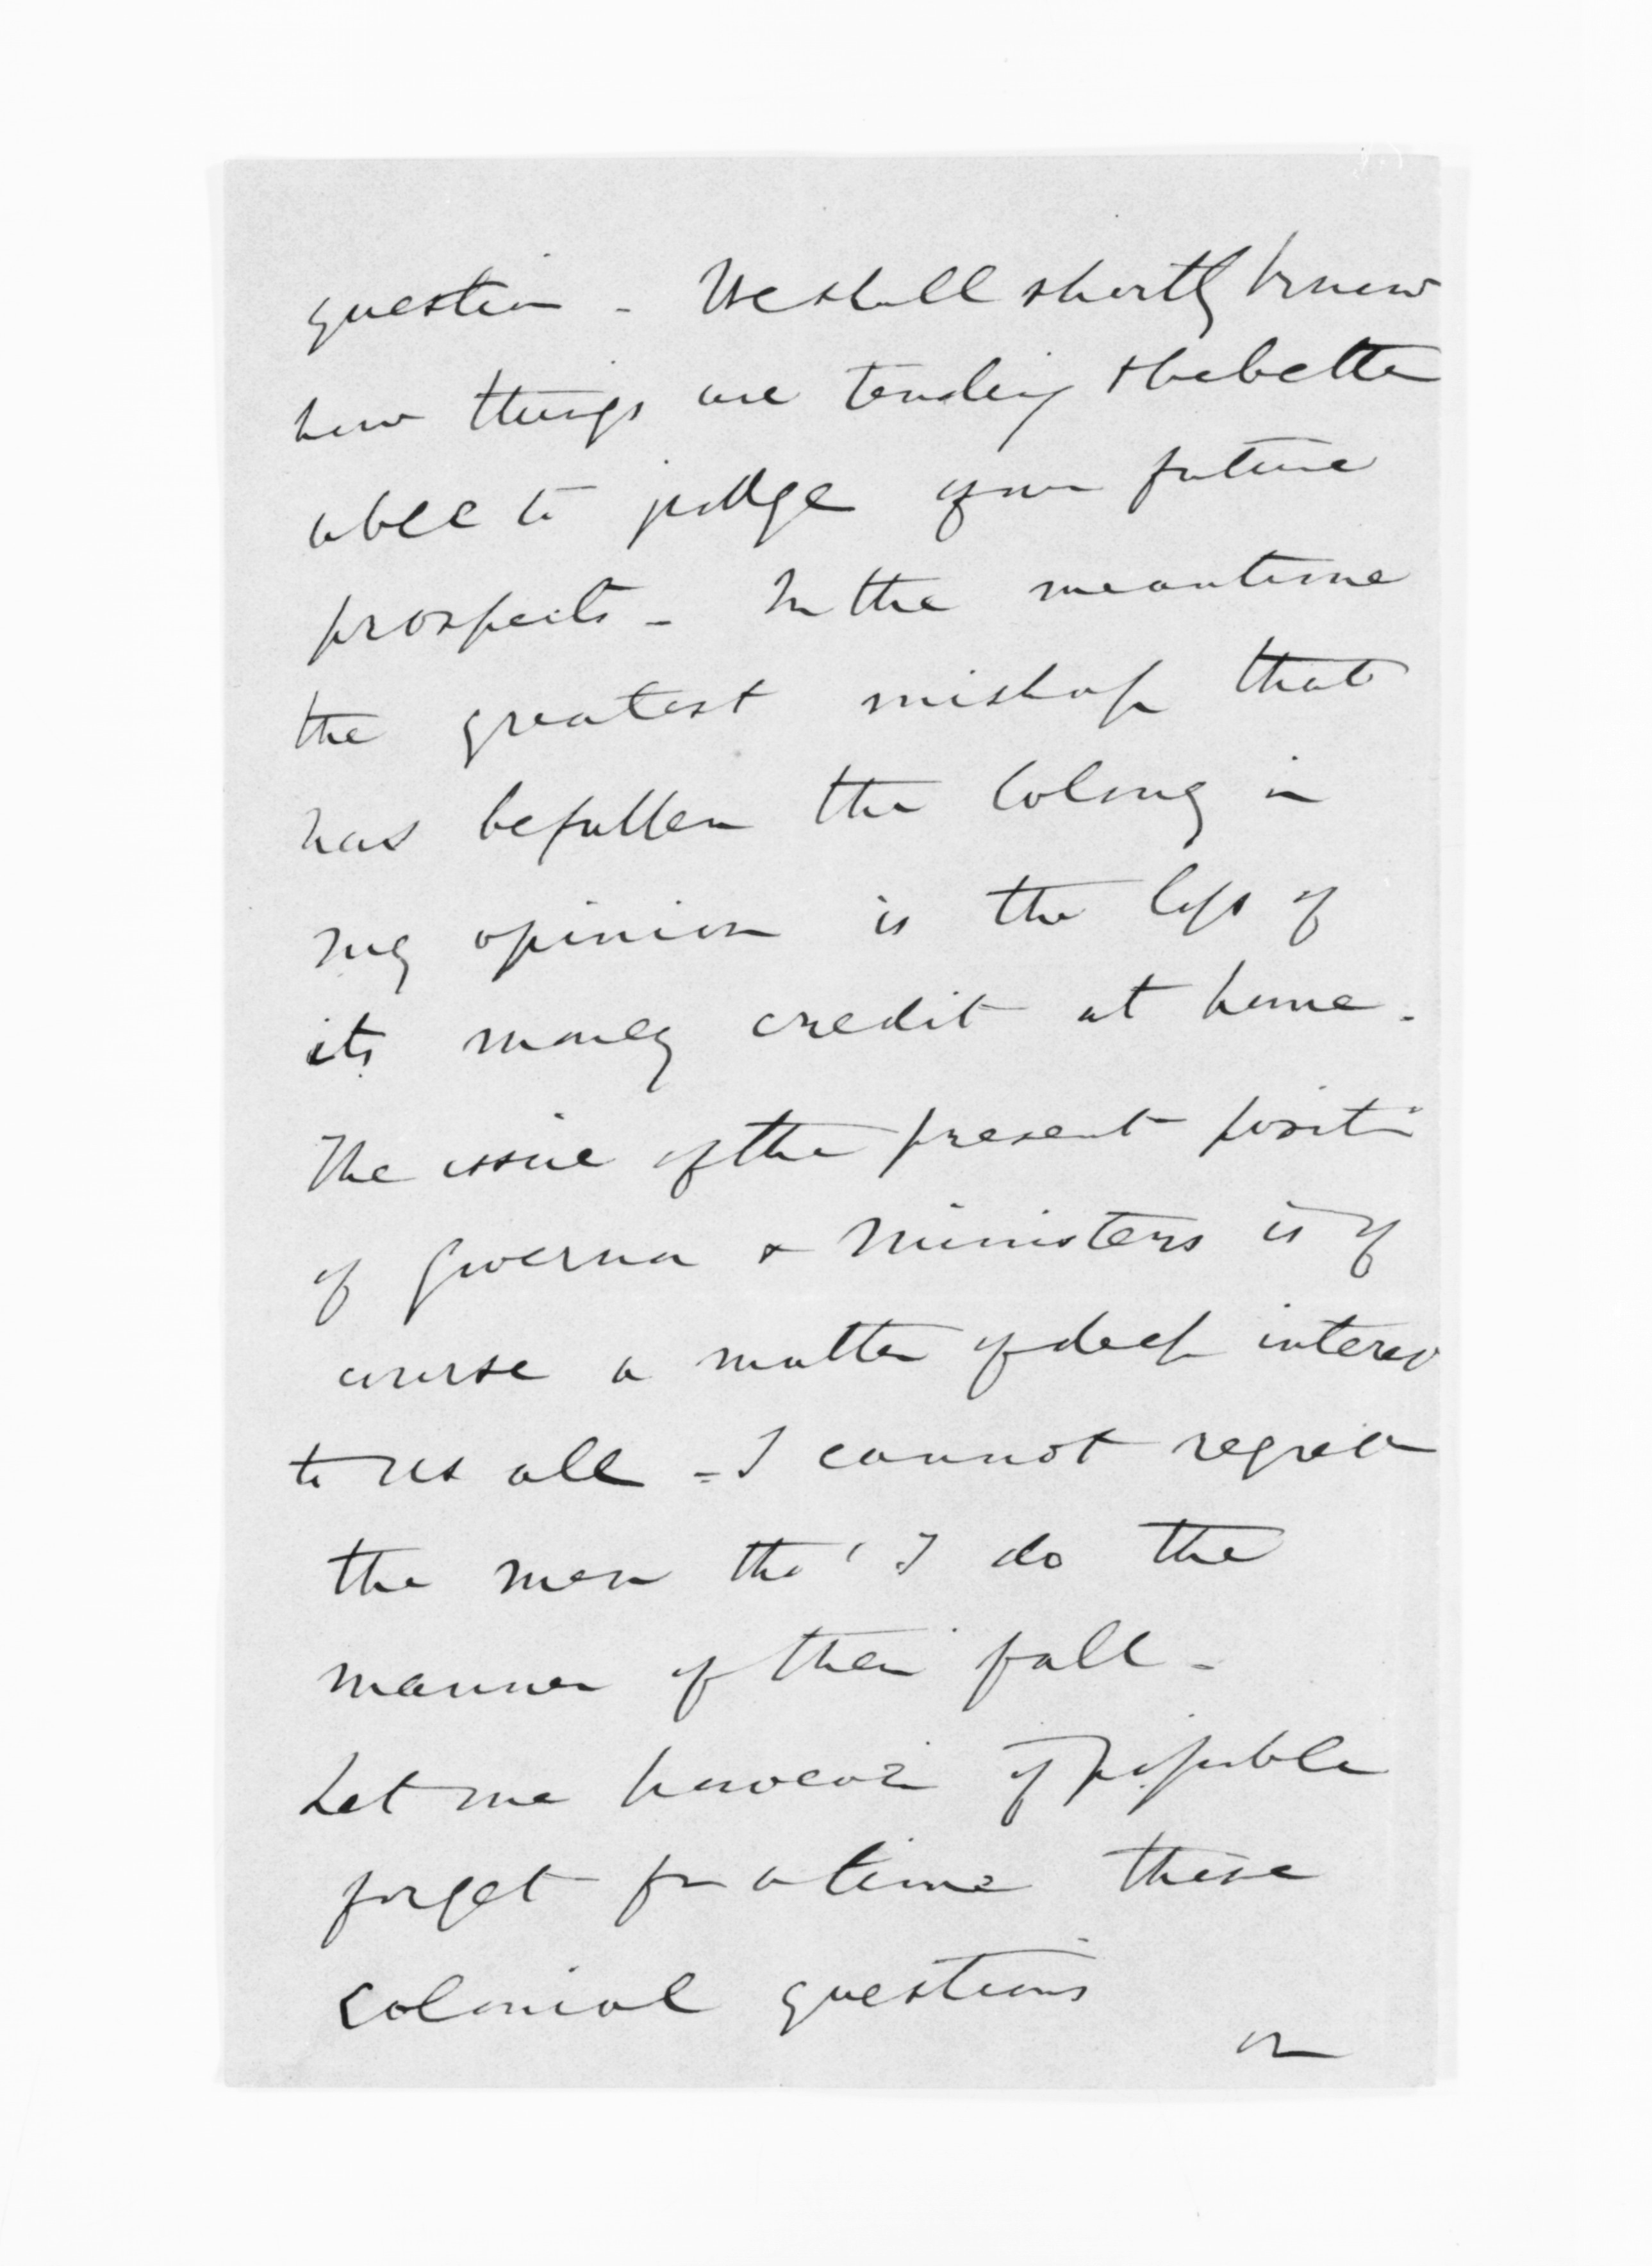 question - We shall shortly know
how things are tending & be better
able to judge of our future
prospects - In the meantime
the greatest mishap that
has befallen the Colony in
my opinion is the loss of
its money credit at home.
The issue of the present positn
of Governor & Ministers is of
course a matter of deep interest
to us all - I cannot regret
the men tho' I do the
manner of their fall -
Let me however if possible
forget for a time these
colonial questions
or